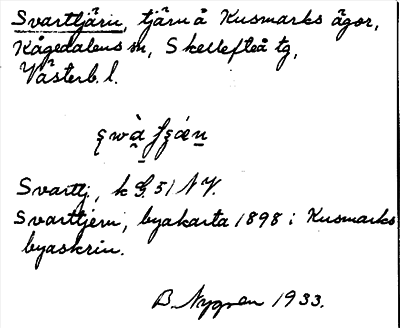 Svarttjärn, tjärn å Kusmarks ägor,
Kågedalens sn, Skellefteå tg,
Västerb. l.
Svarttj, k G. 51 NV.
Svarttjern, byakarta 1898 i Kusmarks
byaskrin.
B. Nygren 1933.